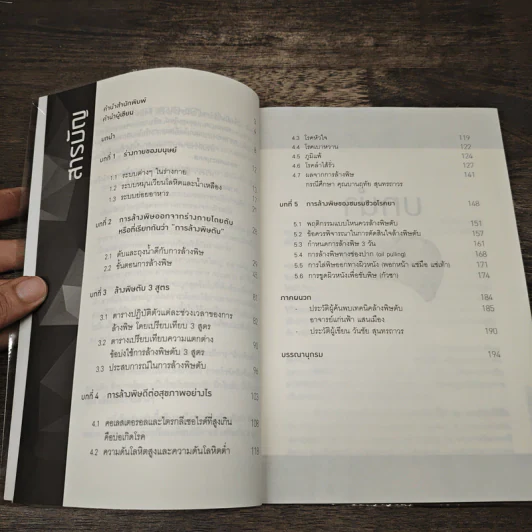 สารบัญ
คำนำสำนักพิมพ์
คำนำผู้เขียน
บทนำ
บทที่ 1 ร่างกายของมนุษย์
1.1 ระบบต่างๆ ในร่างกาย
1.2 ระบบหมุนเวียนโลหิตและน้ำเหลือง
1.3 ระบบย่อยอาหาร
บทที่ 2 การล้างพิษออกจากร่างกายโดยตับ
หรือที่เรียกกันว่า "การล้างพิษตับ"
2.1 ตับและถุงน้ำดีกับการล้างพิษ
2.2 ขั้นตอนการล้างพิษ
บทที่ 3 ล้างพิษตับ 3 สูตร
3.1 ตารางปฏิบัติตัวแต่ละช่วงเวลาของการ
ล้างพิษ โดยเปรียบเทียบ 3 สูตร
3.2 ตารางเปรียบเทียบความแตกต่าง
ข้อบ่งใช้การล้างพิษตับ 3 สูตร
3.3 ประสบการณ์ในการล้างพิษตับ
บทที่ 4 การล้างพิษดีต่อสุขภาพอย่างไร
4.1 คอเลสเตอรอลและไตรกลีเซอไรด์ที่สูงเกิน
คือบ่อเกิดโรค
4.2 ความดันโลหิตสูงและความดันโลหิตต่ำ
4.3 โรคหัวใจ 119
4.4 โรคเบาหวาน 122
4.5 ภูมิแพ้ 124
4.6 โรคลำไส้รั่ว 127
4.7 ผลจากการล้างพิษ 141
กรณีศึกษา คุณบานฤทัย สุนทรถาวร
บทที่ 5 การล้างพิษของชมรมชีวอโรคยา 148
5.1 พฤติกรรมแบบไหนควรล้างพิษตับ 151
5.2 ข้อควรพิจารณาในการตัดสินใจล้างพิษตับ 157
5.3 กำหนดการล้างพิษ 3 วัน 161
5.4 การล้างพิษทางช่องปาก (oil pulling) 168
5.5 การไล่พิษออกทางผิวหนัง (พอกหน้า แช่มือ แช่เท้า) 171
5.6 การขูดผิวหนังเพื่อขับพิษ (กัวซา) 174
ภาคผนวก 184
- ประวัติผู้ค้นพบเทคนิคล้างพิษตับ 185
อาจารย์แก่นฟ้า แสนเมือง
- ประวัติผู้เขียน วันชัย สุนทรถาวร 190
บรรณานุกรม 194